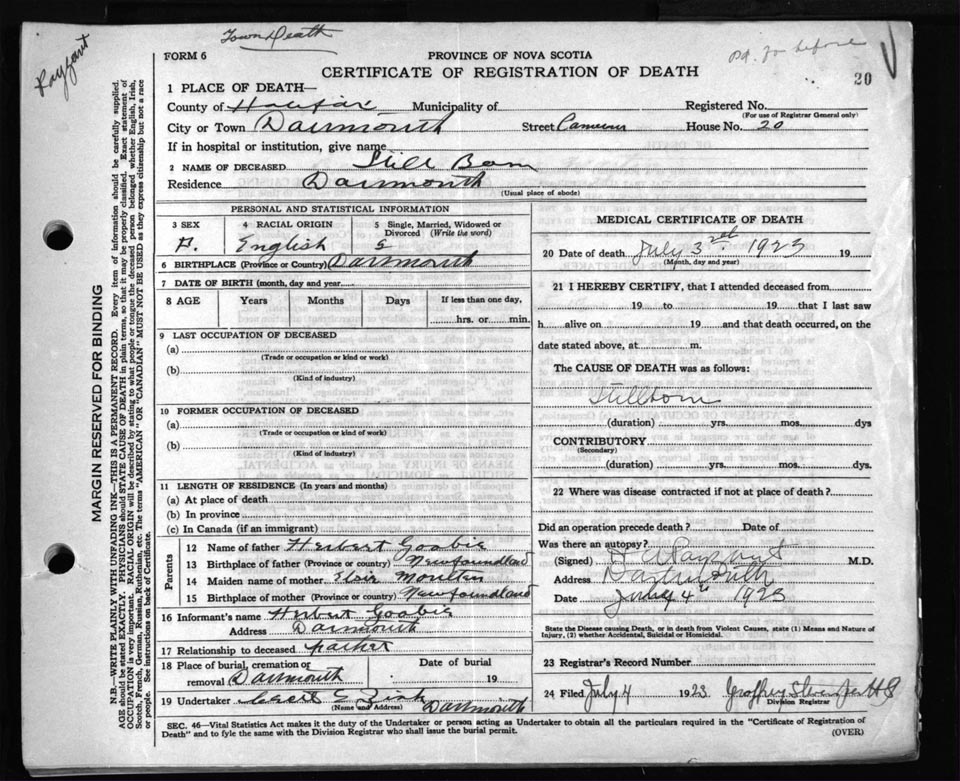 Town Death
Rayzant
FORM 6
PROVINCE OF NOVA SCOTIA
CERTIFICATE OF REGISTRATION OF DEATH
20
1 PLACE OF DEATH—
County of Halifax Municipality of Registered No.
(For use of Registrar General only)
City or Town Darmouth Street House No. 20
If in hospital or institution, give name
2 NAME OF DECEASED Still Born
Residence Darmouth
(Usual place of abode)
PERSONAL AND STATISTICAL INFORMATION
3 SEX 4 RACIAL ORIGIN 5 Single, Married, Widowed or Divorced (Write the word)
F. English S
6 BIRTHPLACE (Province or Country) Darmouth
7 DATE OF BIRTH (month, day and year)
8 AGE Years Months Days If less than one day,
hrs. or min.
9 LAST OCCUPATION OF DECEASED
(a)
(Trade or occupation or kind or work)
(b)
(Kind of industry)
10 FORMER OCCUPATION OF DECEASED
(a)
(Trade or occupation or kind of work)
(b)
(Kind of industry)
11 LENGTH OF RESIDENCE (In years and months)
(a) At place of death
(b) In province
(c) In Canada (if an immigrant)
Parents
12 Name of father Herbert Goobie
13 Birthplace of father (Province or country) Newfoundland
14 Maiden name of mother Elsie Moulten
15 Birthplace of mother (Province or country) Newfoundland
16 Informant's name Herbert Goobie
Address Darmouth
17 Relationship to deceased father
18 Place of burial, cremation or removal Darmouth Date of burial 19
19 Undertaker Zink Darmouth
(Name and Address)
MEDICAL CERTIFICATE OF DEATH
20 Date of death July 3rd 1923 19
(Month, day and year)
21 I HEREBY CERTIFY, that I attended deceased from
19 to 19 that I last saw
h alive on 19 and that death occurred, on the
date stated above, at m.
The CAUSE OF DEATH was as follows:
Stillborn
(duration) yrs. mos. dys
CONTRIBUTORY
(Secondary)
(duration) yrs. mos. dys.
22 Where was disease contracted if not at place of death?
Did an operation precede death? Date of
Was there an autopsy?
(Signed) M.D.
Address Dartmouth
Date July 4th 1923
State the Disease causing Death, or in death from Violent Causes, state (1) Means and Nature of
Injury, (2) whether Accidental, Suicidal or Homicidal.
23 Registrar's Record Number
24 Filed July 4 1923 Geoffrey Stevens
Division Registrar
SEC. 46—Vital Statistics Act makes it the duty of the Undertaker or person acting as Undertaker to obtain all the particulars required in the "Certificate of Registration of
Death" and to fyle the same with the Division Registrar who shall issue the burial permit.
(OVER)
MARGIN RESERVED FOR BINDING
N.B.—WRITE PLAINLY WITH UNFADING INK—THIS IS A PERMANENT RECORD. Every item of information should be carefully supplied.
AGE should be stated EXACTLY. PHYSICIANS should STATE CAUSE OF DEATH in plain terms, so that it may be properly classified. Exact statement of
OCCUPATION is very important. RACIAL ORIGIN will be described by stating to what people or tongue the deceased person belonged whether English, Irish,
Scotch, French, German, Russian, Ruthenian, etc. The terms "AMERICAN" OR "CANADIAN" MUST NOT BE USED as they express citizenship but not a race
or people. See instructions on back of Certificate.